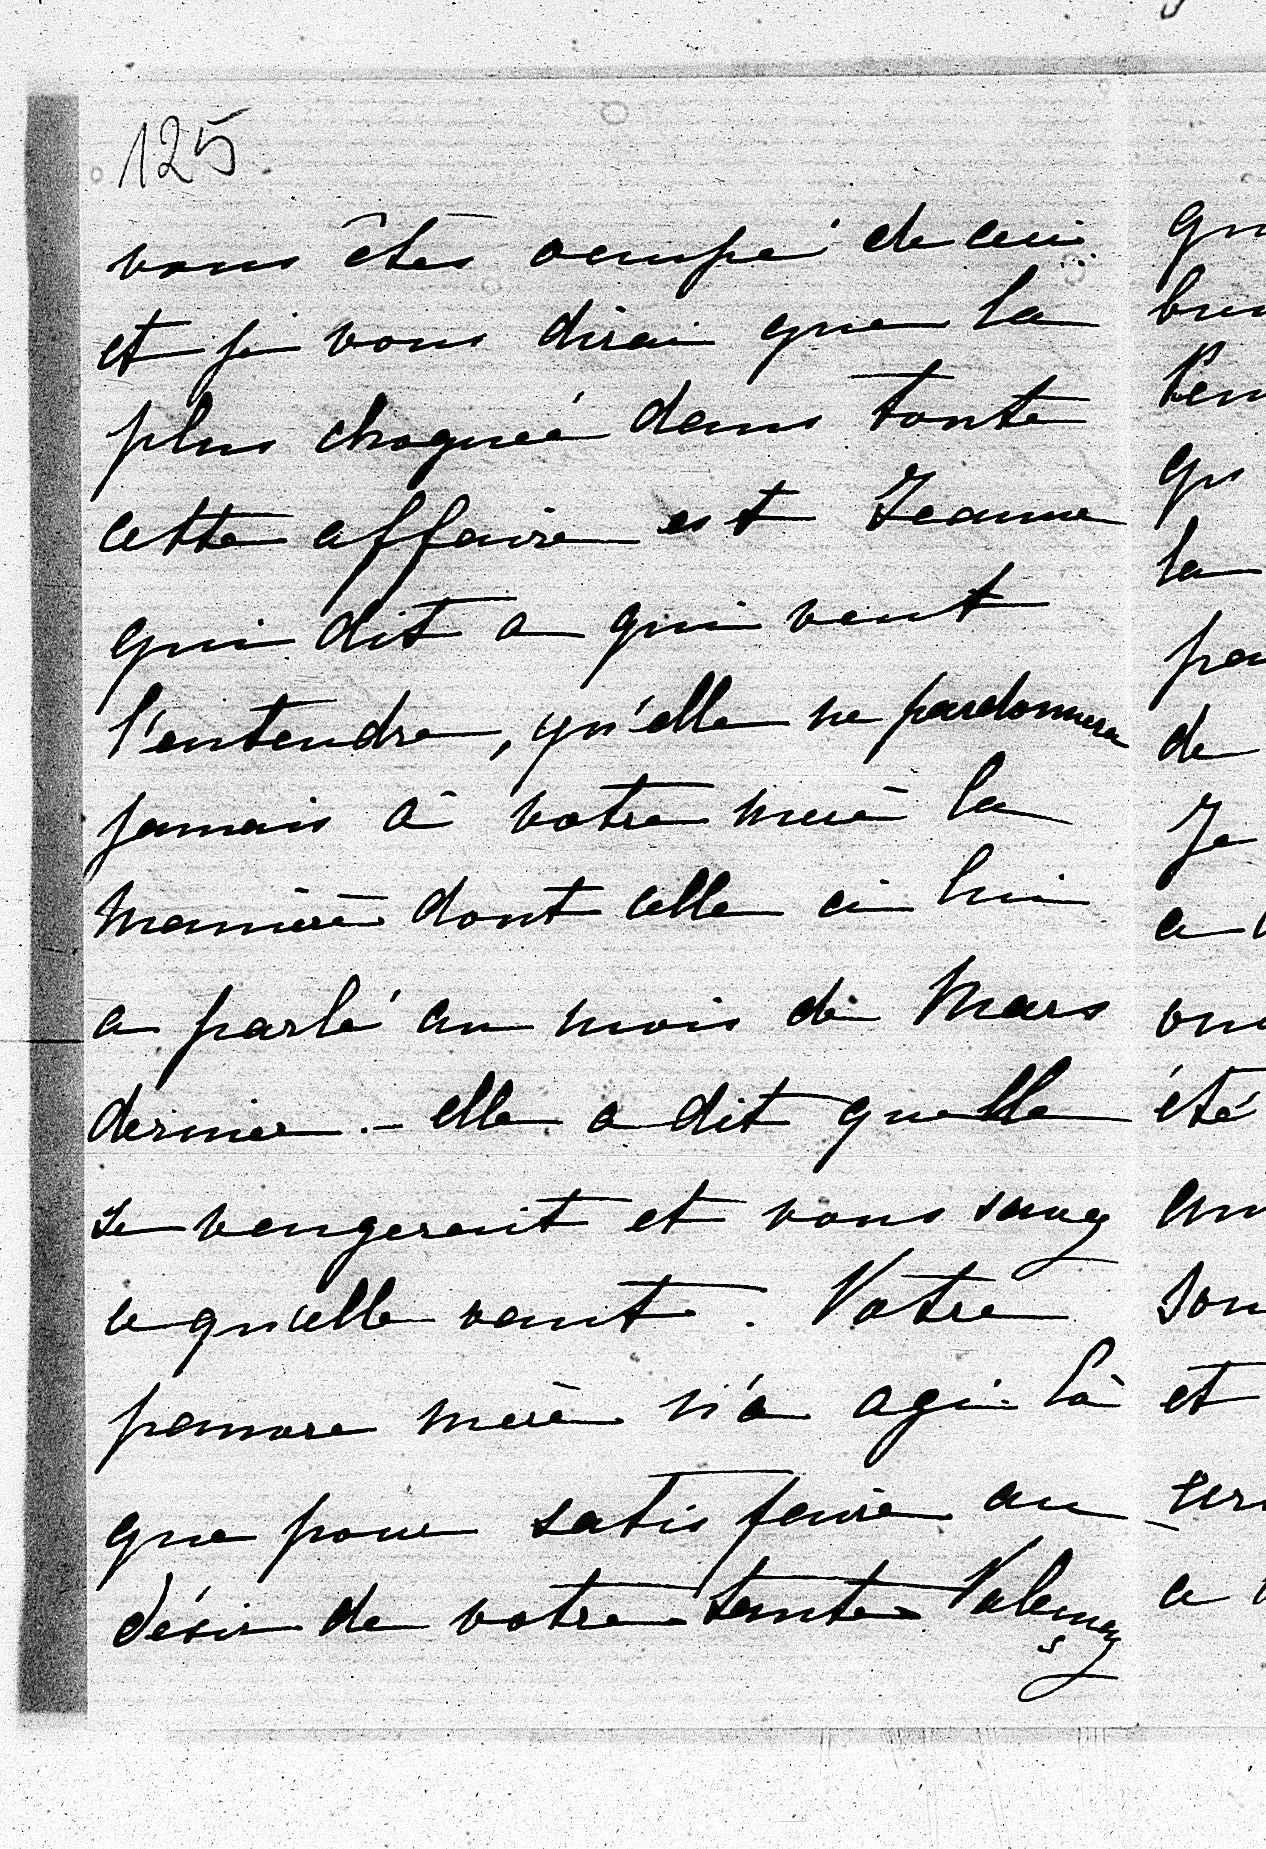 125
vous êtes ocupé de ceci
et je vous dirai que la
plus choquée dans toute
cette affaire est Jeanne
qui dit a qui veut
l'entendre, qu'elle ne pardonnera
jamais à votre mère la
manière dont celle ci lui
a parlé au mois de Mars
dernier. - elle a dit quelle
se vengerait et vous savez
ce qu'elle vaut. Votre
pauvre mère n'a agi là
que pour satisfaire au
désir de votre tante
qu
la
de
Je
a
été
et
a